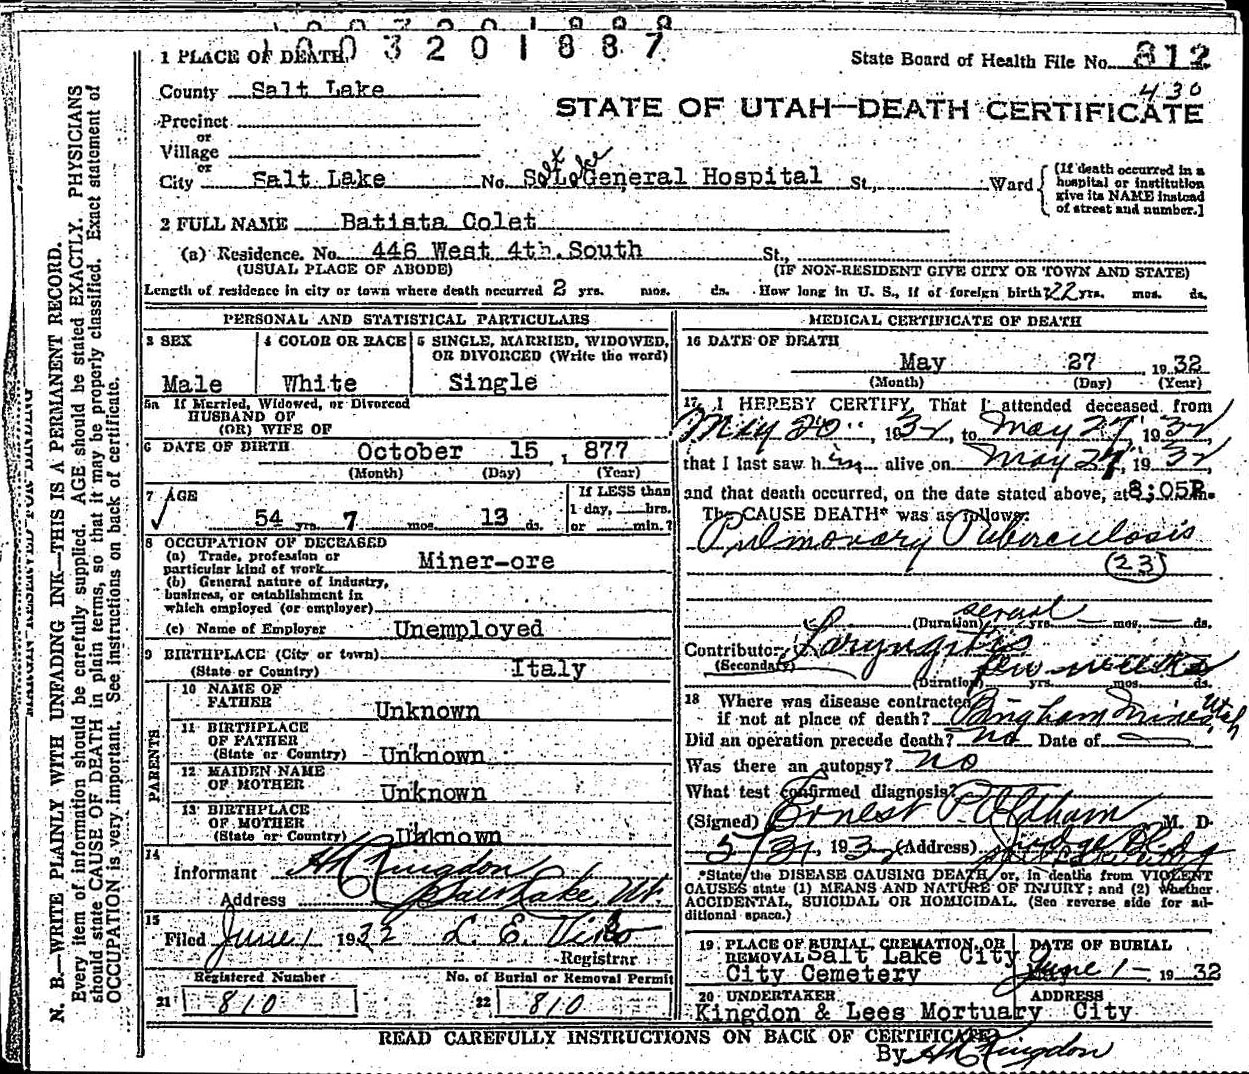 1003201887
1 PLACE OF DEATH
State Board of Health File No. 812
County Salt Lake
430
STATE OF UTAH—DEATH CERTIFICATE
Precinct
or
Village
or
City Salt Lake No. Salt Lake General Hospital St., Ward
[If death occurred in a hospital or institution give its NAME instead of street and number.]
2 FULL NAME Batista Colet
(a) Residence. No. 446 West 4th. South St.,
(USUAL PLACE OF ABODE) (IF NON-RESIDENT GIVE CITY OR TOWN AND STATE)
Length of residence in city or town where death occurred 2 yrs. mos. ds. How long in U. S., if of foreign birth? 22 yrs. mos. ds.
PERSONAL AND STATISTICAL PARTICULARS
3 SEX 4 COLOR OR RACE 5 SINGLE, MARRIED, WIDOWED, OR DIVORCED (Write the word)
Male White Single
5a If Married, Widowed, or Divorced
HUSBAND OF
(OR) WIFE OF
6 DATE OF BIRTH October 15, 877
(Month) (Day) (Year)
7 AGE
54 yrs. 7 mos. 13 ds.
If LESS than
1 day, hrs.
or min.?
8 OCCUPATION OF DECEASED
(a) Trade, profession or
particular kind of work Miner-ore
(b) General nature of industry,
business, or establishment in
which employed (or employer)
(c) Name of Employer Unemployed
9 BIRTHPLACE (City or town)
(State or Country) Italy
PARENTS
10 NAME OF
FATHER Unknown
11 BIRTHPLACE
OF FATHER
(State or Country) Unknown
12 MAIDEN NAME
OF MOTHER Unknown
13 BIRTHPLACE
OF MOTHER
(State or Country) Unknown
14
Informant H Kingdon
Address Salt Lake, Ut.
15
Filed June 1 1932 L. E. Viko
Registrar
Registered Number No. of Burial or Removal Permit
21 810 22 810
MEDICAL CERTIFICATE OF DEATH
16 DATE OF DEATH
May 27, 1932
(Month) (Day) (Year)
17 I HEREBY CERTIFY, That I attended deceased from
May 20, 1932, to May 27, 1932,
that I last saw him alive on May 27, 1932,
and that death occurred, on the date stated above, at 8:05P.m.
The CAUSE DEATH* was as follows:
Pulmonary Tuberculosis
(23)
(Duration) several yrs. — mos. — ds.
Contributory Laryngitis
(Secondary) few weeks
(Duration) yrs. mos. ds.
18 Where was disease contracted
if not at place of death? Bingham Mines, Utah
Did an operation precede death? no Date of —
Was there an autopsy? no
What test confirmed diagnosis?
(Signed) Ernest P. Oldham M. D.
5/31, 1932 (Address) Judge Bldg
*State the DISEASE CAUSING DEATH, or, in deaths from VIOLENT
CAUSES state (1) MEANS AND NATURE OF INJURY; and (2) Whether
ACCIDENTAL, SUICIDAL OR HOMICIDAL. (See reverse side for additional space.)
19 PLACE OF BURIAL, CREMATION, OR
REMOVAL Salt Lake City
City Cemetery
DATE OF BURIAL
June 1 - 1932
20 UNDERTAKER ADDRESS
Kingdon & Lees Mortuary City
READ CAREFULLY INSTRUCTIONS ON BACK OF CERTIFICATE
By H Kingdon
N. B.—WRITE PLAINLY WITH UNFADING INK—THIS IS A PERMANENT RECORD.
Every item of information should be carefully supplied. AGE should be stated EXACTLY. PHYSICIANS
should state CAUSE OF DEATH in plain terms, so that it may be properly classified. Exact statement of
OCCUPATION is very important. See instructions on back of certificate.